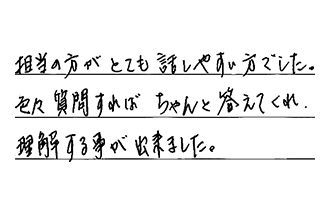 担当の方がとても話しやすい方でした。
色々質問すれば ちゃんと答えてくれ、
理解する事が出来ました。